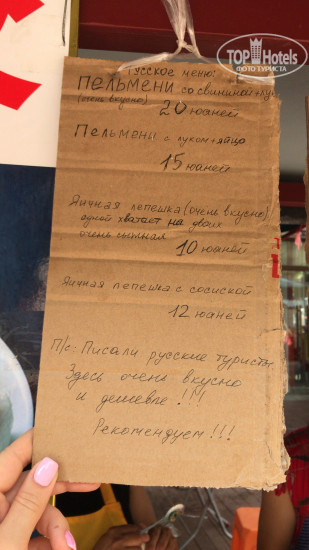 TOP Hotels
ФОТО ТУРИСТА
Русское меню:
ПЕЛЬМЕНИ со свининой+лук
(очень вкусно) 20 юаней
Пельмены с луком+яйцо
15 юаней
Яичная лепешка (очень вкусно)
одной хватает на двоих
очень 10 юаней
Яичная лепешка с сосиской
12 юаней
П/с: Писали русские туристы
Здесь очень вкусно
и дешевле!!!
Рекомендуем!!!